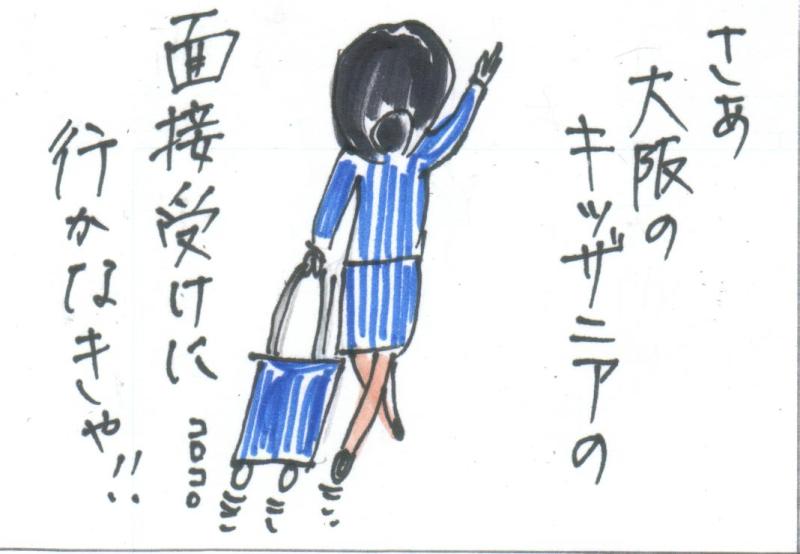 さあ
大阪の
キッザニアの
面接受けに
行かなきゃ!!
コロコロ